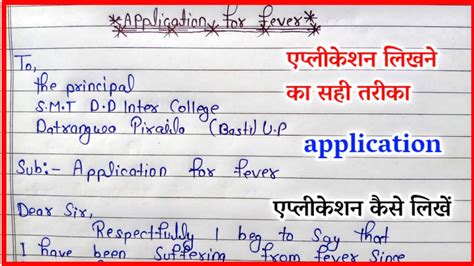 *Application for fever*
To,
the principal
S.M.T D.D Inter College
(Basti) U.P
Sub:- Application for fever
Dear Sir,
Respectfully I beg to Say that
I have been Suffering from fever Since
एप्लीकेशन लिखने
का सही तरीका
application
एप्लीकेशन कैसे लिखें